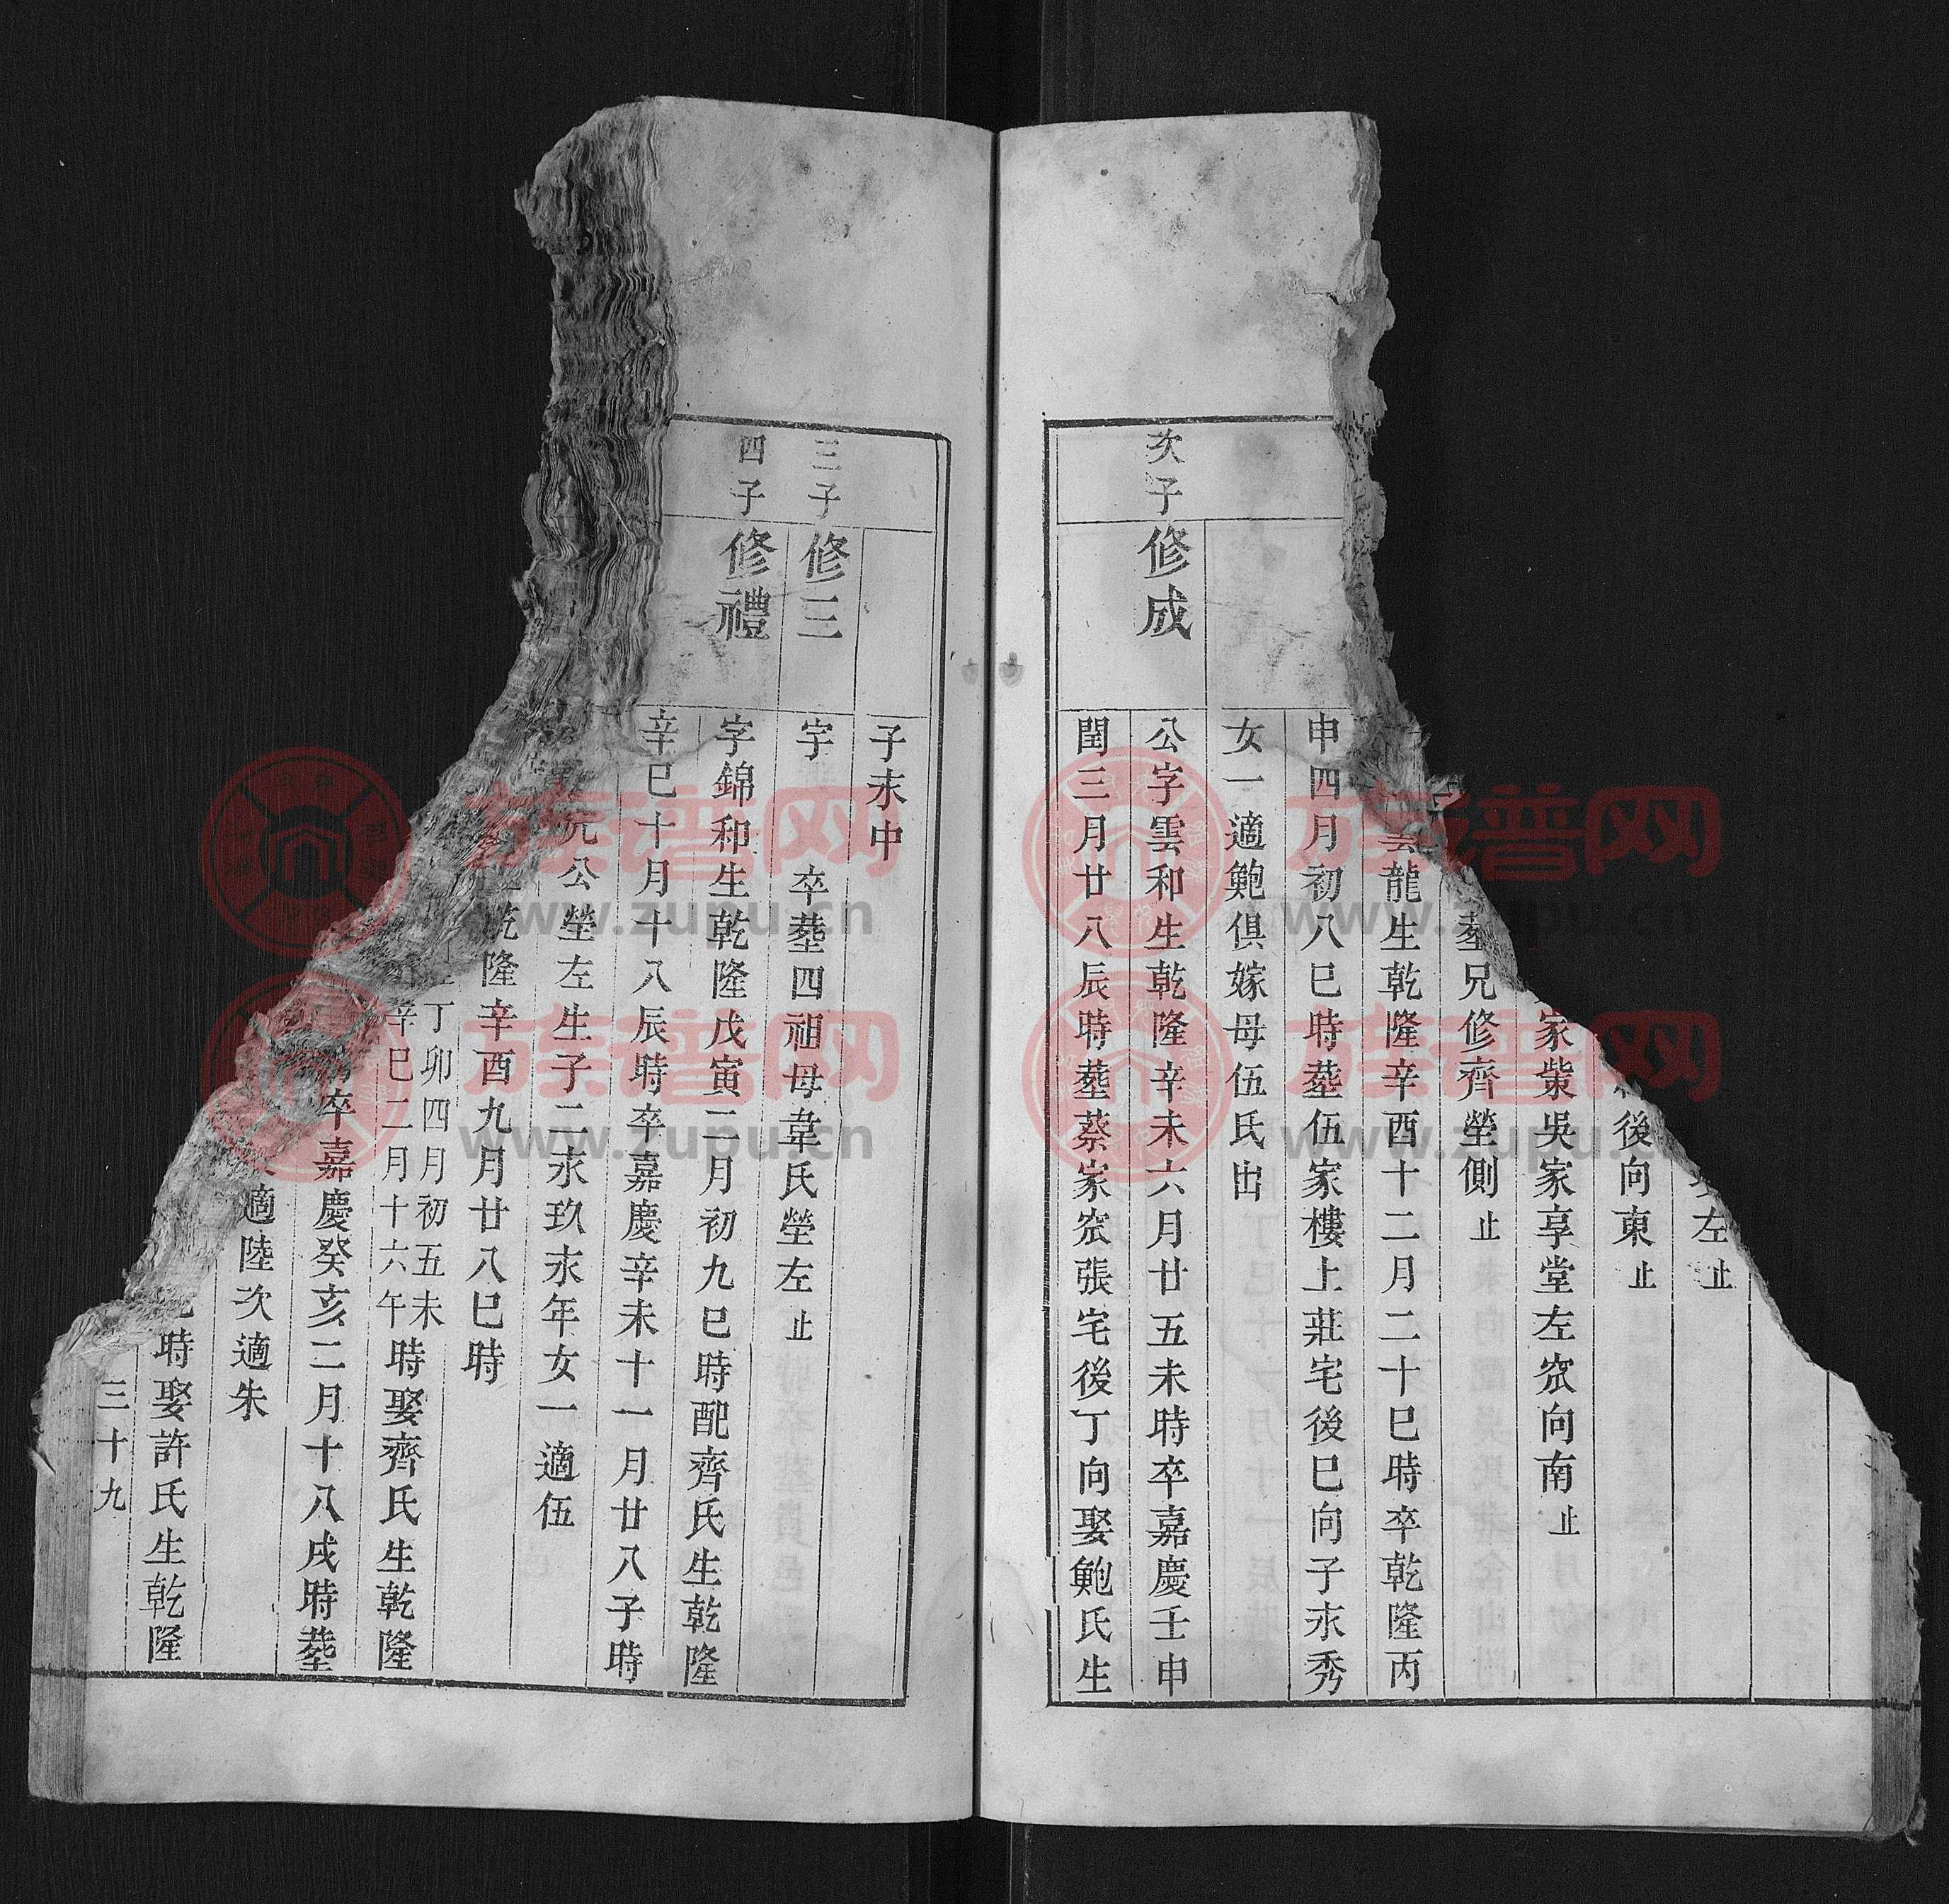 左止
後向東止
家柴吳家享堂左窊向南止
塟兄修齊塋側止
龍生乾隆辛酉十二月二十巳時卒乾隆丙
申四月初八巳時塟伍家樓上莊宅後巳向子永秀
女一適鮑俱嫁母伍氏出
次子
修成
公字雲和生乾隆辛未六月廿五未時卒嘉慶壬申
閏三月廿八辰時塟蔡家窊張宅後丁向娶鮑氏生
子末中
三子
修三
字 卒塟四祖母韋氏塋左止
四子
修禮
字錦和生乾隆戊寅二月初九巳時配齊氏生乾隆
辛巳十月十八辰時卒嘉慶辛未十一月廿八子時
元公塋左生子二永玖永年女一適伍
乾隆辛酉九月廿八巳時
丁卯四月初五未
辛巳二月十六午
時娶齊氏生乾隆
卒嘉慶癸亥二月十八戌時塟
適陸次適朱
時娶許氏生乾隆
三十九
族谱网
www.zupu.cn
族谱网
www.zupu.cn
族谱网
www.zupu.cn
族谱网
www.zupu.cn